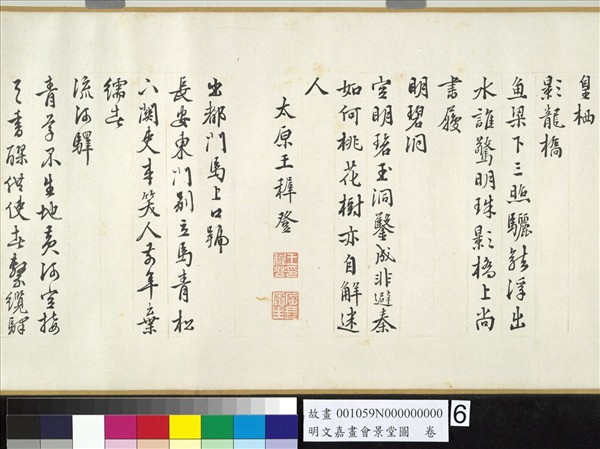 皇栖
影龍橋
魚梁下三照驪浮出
水誰驚明珠影橋上尚
書履
明碧洞
空明碧玉洞鑿成非避秦
如何桃花樹亦自解迷
人
太原王穉登
出都門馬上口號
長安東門別立馬青松
下關吏笑人前年棄
繻者
流河驛
青草不生地黃河空接
天書供使者繫纜驛
故畫 001059N000000000
明文嘉畫會景堂圖 卷
6